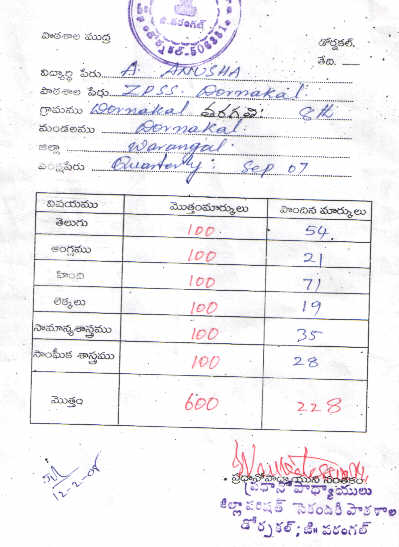 జి. వరంగల్
డోర్నకల్-506381
పాఠశాల ముద్ర
డోర్నకల్,
తేది.
విద్యార్థి పేరు A. ANUSHA
పాఠశాల పేరు ZPSS. Dornakal.
గ్రామము Dornakal తరగతి 8th
మండలము Dornakal.
జిల్లా Warangal.
పరీక్షపేరు Quarterly. Sep 07
విషయము మొత్తంమార్కులు పొందిన మార్కులు
తెలుగు 100. 54.
ఆంగ్లము 100 21
హింది 100 71
లెక్కలు 100 19
సామాన్యశాస్త్రము 100 35
సాంఘీక శాస్త్రము 100 28
మొత్తం 600 228
12-2-08
ప్రధానోపాధ్యాయుని సంతకం
ప్రధానోపాధ్యాయులు
జిల్లా పరిషత్ సెకండరీ పాఠశాల
డోర్నకల్; జి॥ వరంగల్